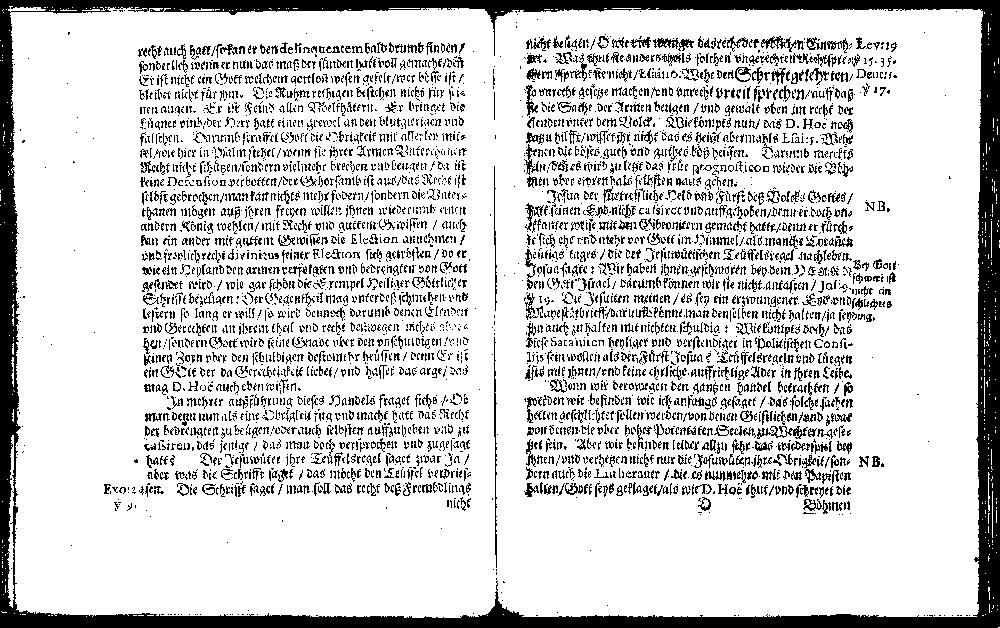 recht auch hatt / so kan er den delinquentem bald drumb finden /
sonderlich wenn er nun das maß der sünden hatt voll gemacht / denn
Er ist nicht ein Gott welchem gottlos wesen gefele / wer böse ist /
bleibet nicht für ihm. Die Ruhmrethigen bestehen nicht für sei-
nen augen. Er ist Feind allen Vbelthätern. Er bringet die
Lügner vmb / der Herr hatt einen grewel an den blutgierigen vnd
falschen. Darumb straffet Gott die Obrigkeit mit allerley mit-
tel / wie hier in Psalm stehet / wenn sie ihrer Armen Vnterthanen
Recht nicht schützen / sondern vielmehr brechen vnd beugen / da ist
keine Defension verbotten / der Gehorsamb ist aus / das Recht ist
selbst gebrochen / man kan nichts mehr fodern / sondern die Vnter-
thanen mögen auß ihren freyen willen ihnen wiederumb einen
andern König wehlen / mit Recht vnd guttem Gewissen / auch
kan ein ander mit guttem Gewissen die Election annehmen /
vnd frölich recht divinitus seiner Election sich getrösten / do er
wie ein Heyland den armen verfolgten vnd bedrengten von Gott
gesendet wird / wie gar schön die Exempel Heiliger Göttlicher
Schrifft bezeugen: Der Gegentheil mag vnterdeß schmehen vnd
lestern so lang er will / so wird dennoch darumb denen Elenden
vnd Gerechten an ihrem theil vnd recht deßwegen nichts abge-
hen / sondern Gott wird seine Gnade vber den vnschuldigen / vnd
seinen Zorn vber den schuldigen destomehr heüffen / denn Er ist
ein GOtt der da Gerechtigkeit liebet / vnd hasset das arge / das
mag D. Hoë auch eben wissen.
In mehrer außführung dieses Handels fraget sichs / Ob
man denn nun als eine Obrigkeit fug vnd macht hatt das Recht
der bedrengten zu beugen / oder auch selbsten auffzuheben vnd zu
cassiren, das jenige / das man doch versprochen vnd zugesagt
hatt? Der Jesuwüter ihre Teüffelsregel saget zwar Ja /
aber was die Schrifft saget / das möcht den Teüffel verdries-
Exo: 23 sen. Die Schrifft saget / man soll das recht deß Frembdlings
ꝟ 9. nicht
nicht beugen / O wie viel weniger das recht der erblichen Einwoh- Levi: 19
ner. Was thut sie anders als solchen vngerechten ꝟ 15. 35.
sprechen sie nicht / Esa: 10. Wehe den Schrifftgelehrten / Deut:
so vnrecht gesetze machen / vnd vnrecht vrteil sprechen / auff daß ꝟ 17.
sie die Sache der Armen beugen / vnd gewalt vben im recht der
Elenden vnter dem Volck. Wie kömpts nun / das D. Hoë noch
dazu hilfft / wisset ihr nicht das es heist abermahls Esai: 5. Wehe
denen die böses guth vnd guthes böß heissen. Darumb merckts
fein / daß es nicht zu letzt das prognosticon wieder die Böh-
men vber ewren hals selbsten naus gehen.
Josua der fürtreffliche Held vnd Fürst deß Volcks Gottes /
hatt seinen Eyd nicht cassiret vnd auffgehoben / denn er doch vn-
bekanter weise mit den Gibeonitern gemacht hatte / denn er fürch- NB.
te sich ehe vnd mehr vor Gott im Himmel / als manche
heütigs tages / die der Jesuwütischen Teüffelsregel nachleben.
Josua sagte: Wir haben ihnen geschworen bey dem HERRN Bey Gott
den Gott Israel / darumb können wir sie nicht antasten / Jos: 9. schweren ist
ꝟ 19. Die Jesuiten meinen / es sey ein erzwungener Eyd vnd nicht ein schlechtes
Mayestätbrieff / darumb könne man denselben nicht halten / ja sey ding.
ihn auch zu halten mit nichten schuldig: Wie kömpts doch / das
diese Sataniten heyliger vnd verstendiger in Politischen Consi-
liis sein wollen als der Fürst Josua? Teüffelsregeln vnd lüegen
ists mit ihnen / vnd keine ehrliche auffrichtige Ader in ihren Leibe.
Wenn wir derowegen den gantzen handel betrachten / so
werden wir befinden wie ich anfangs gesaget / das solche sachen
hetten geschlichtet sollen werden / von denen Geistlichen / vnd zwar
von denen die vber hoher Potentaten Seelen zu Wechtern gese-
tzet sein. Aber wir befinden leider allzu sehr das wiederspiel bey
ihnen / vnd verhetzen nicht nur die Jesuwüten ihre Obrigkeit / son- NB.
dern auch die Lutheraner / die es nunmehro mit den Papisten
halten / Gott seys geklaget / als wie D. Hoë thut / vnd schreyet die
D Böhmen